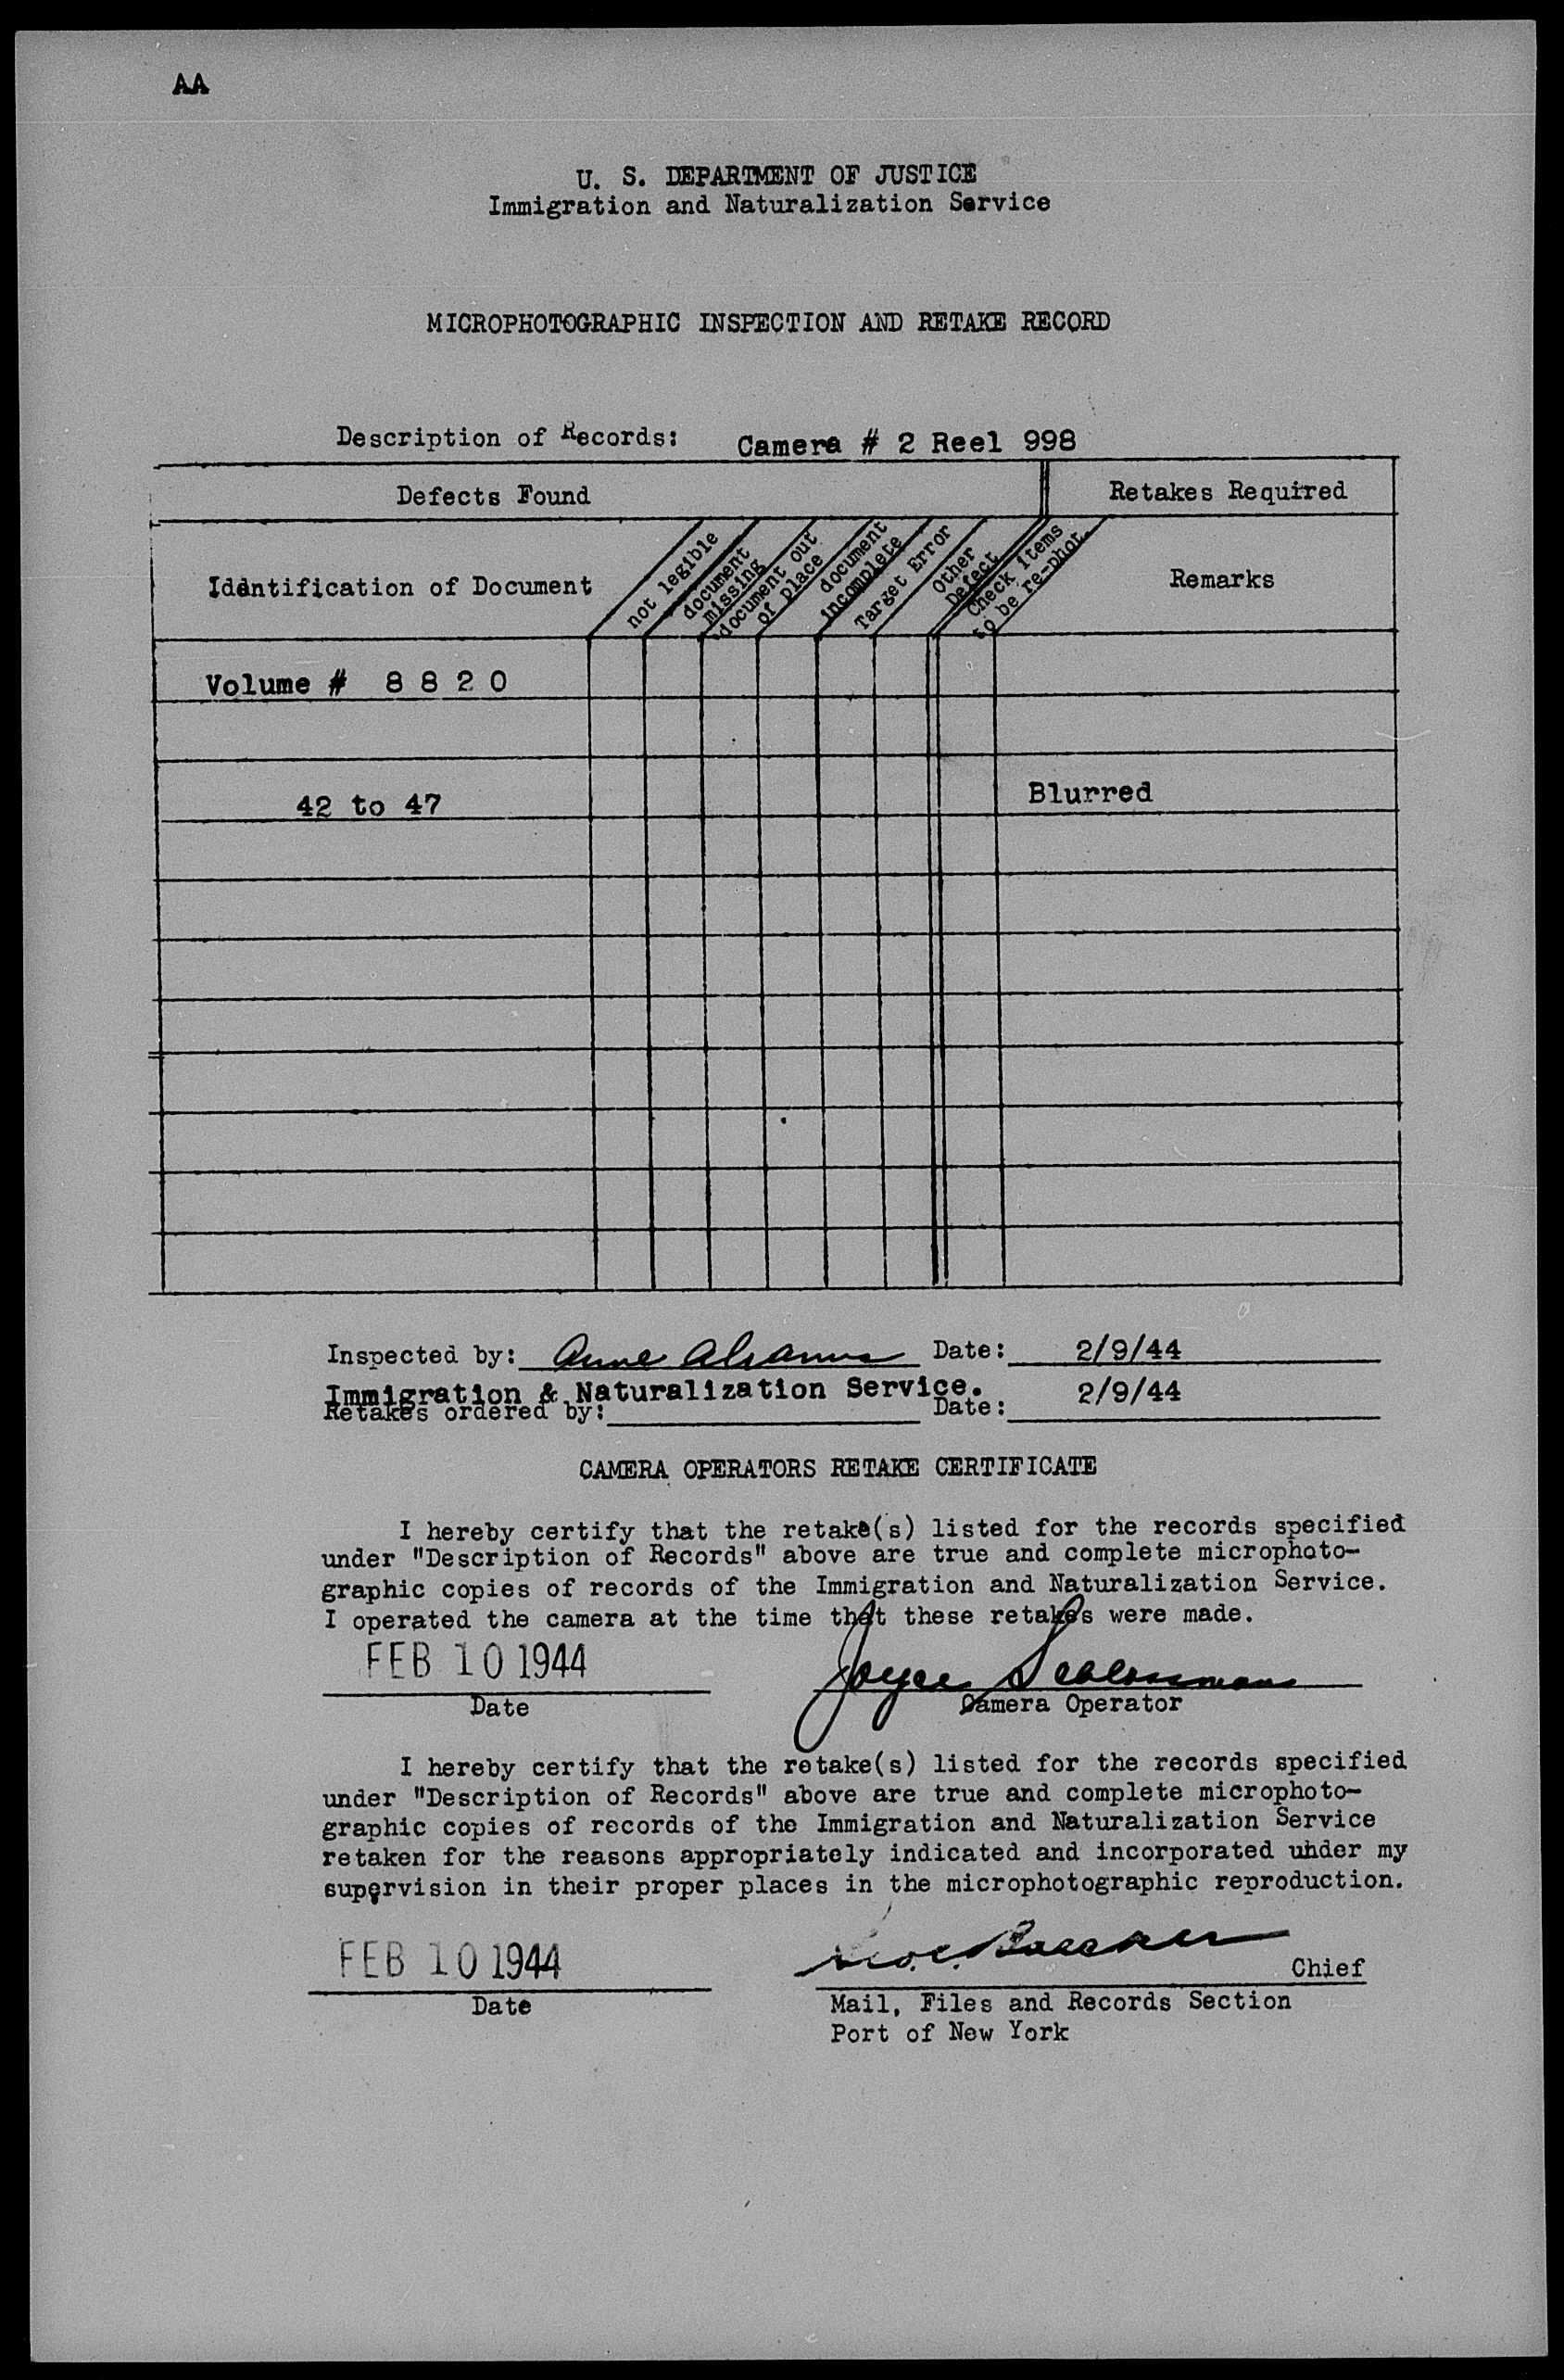 AA
U. S. DEPARTMENT OF JUSTICE
Immigration and Naturalization Service
MICROPHOTOGRAPHIC INSPECTION AND RETAKE RECORD
Description of Records: Camera # 2 Reel 998
Defects Found
Retakes Required
Identification of Document
not legible
document
missing
document out
of place
document
incomplete
Target Error
Other
Defect
Check items
to be re-phot.
Remarks
Volume # 8 8 2 0
42 to 47
Blurred
Inspected by: Anne Date: 2/9/44
Immigration & Naturalization Service. 2/9/44
Retakes ordered by: Date:
CAMERA OPERATORS RETAKE CERTIFICATE
I hereby certify that the retake(s) listed for the records specified
under "Description of Records" above are true and complete microphoto-
graphic copies of records of the Immigration and Naturalization Service.
I operated the camera at the time that these retakes were made.
FEB 10 1944
Joyce
Date
Camera Operator
I hereby certify that the retake(s) listed for the records specified
under "Description of Records" above are true and complete microphoto-
graphic copies of records of the Immigration and Naturalization Service
retaken for the reasons appropriately indicated and incorporated under my
supervision in their proper places in the microphotographic reproduction.
FEB 10 1944
Chief
Date
Mail, Files and Records Section
Port of New York